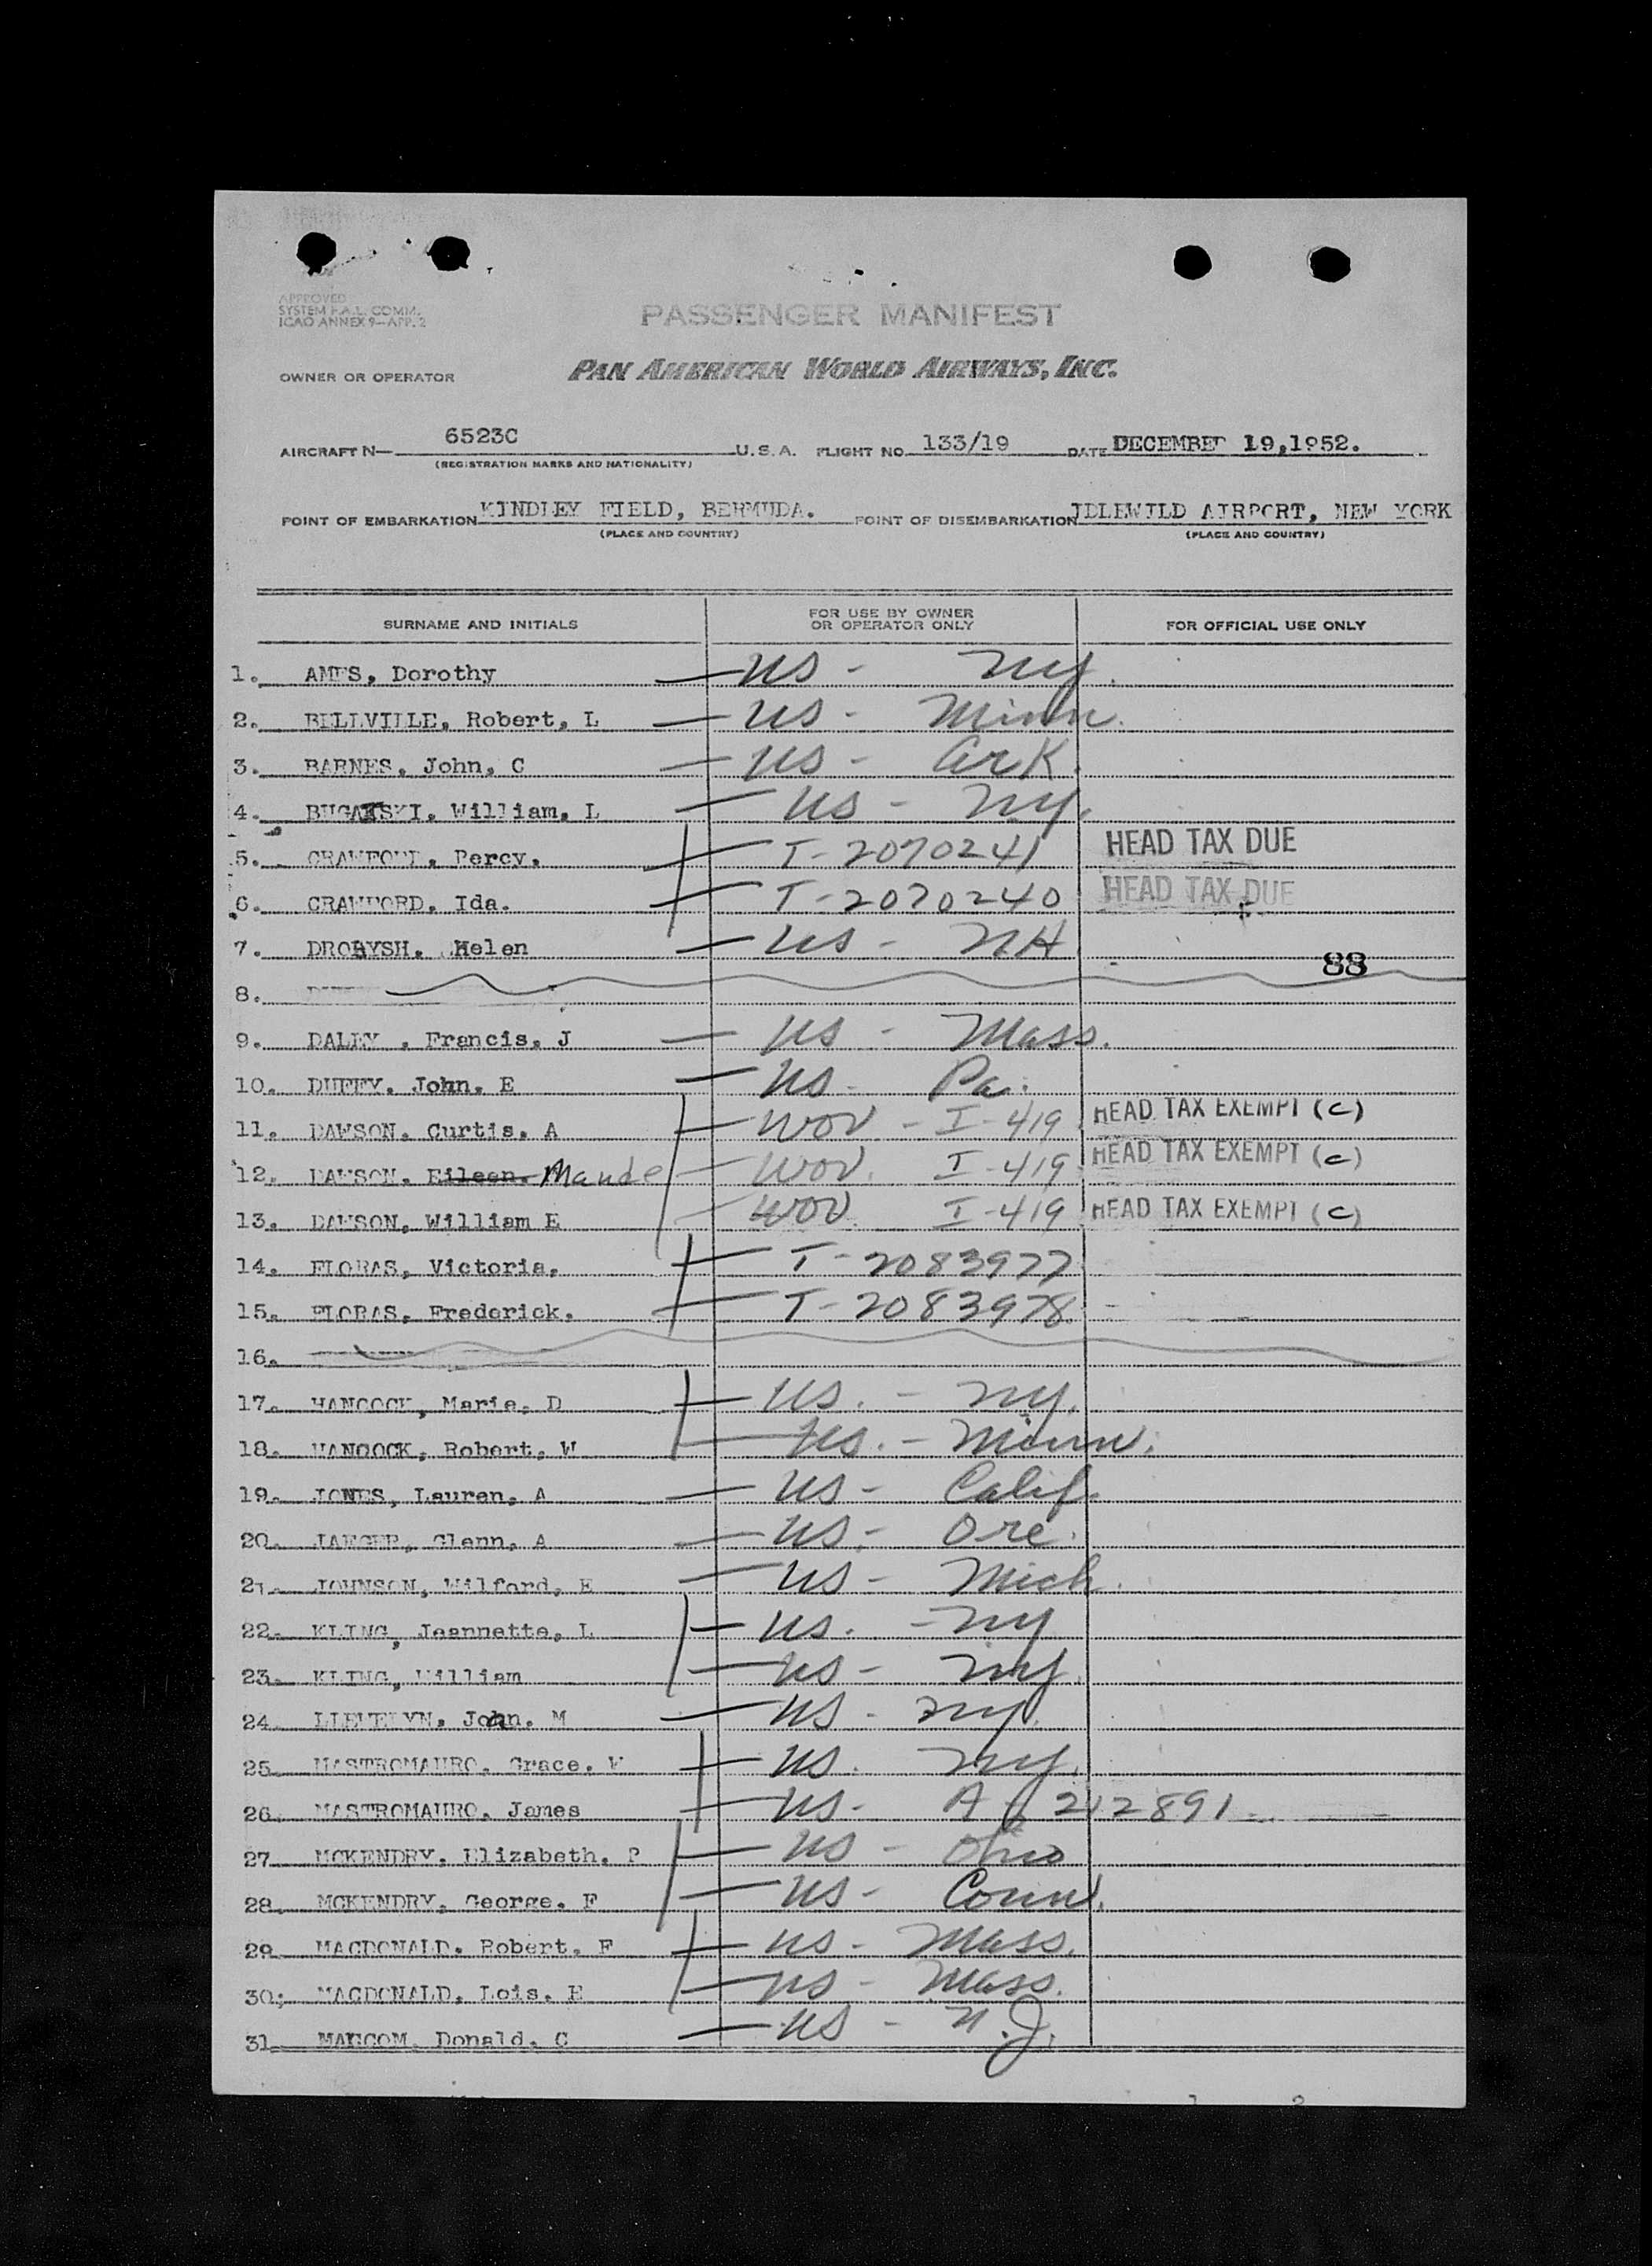 APPROVED
SYSTEM F.A.L. COMM.
ICAO ANNEX 9—APP. 2
PASSENGER MANIFEST
OWNER OR OPERATOR PAN AMERICAN WORLD AIRWAYS, INC.
AIRCRAFT N— 6523C U.S.A. FLIGHT NO. 133/19 DATE DECEMBER 19,1952.
(REGISTRATION MARKS AND NATIONALITY)
POINT OF EMBARKATION KINDLEY FIELD, BERMUDA. POINT OF DISEMBARKATION IDLEWILD AIRPORT, NEW YORK
(PLACE AND COUNTRY) (PLACE AND COUNTRY)
SURNAME AND INITIALS FOR USE BY OWNER OR OPERATOR ONLY FOR OFFICIAL USE ONLY
1. AMES, Dorothy — US - NY.
2. BELLVILLE, Robert, L — US - Minn.
3. BARNES, John, C — US - Ark.
4. William, L — US - NY.
5. CRAWFORD, Percy. — T-2070241 HEAD TAX DUE
6. CRAWFORD, Ida. — T-2070240 HEAD TAX DUE
7. DROBYSH. Helen — US - NH
88
8.
9. DALEY , Francis. J — US - Mass.
10. DUFFY. John. E — US - Pa.
11. DAWSON. Curtis. A — WOV - I-419 HEAD TAX EXEMPT (C)
12. DAWSON. Eileen. Maude — WOV. I-419 HEAD TAX EXEMPT (C)
13. DAWSON, William E — WOV I-419 HEAD TAX EXEMPT (C)
14. FLORAS, Victoria. — T-2083977
15. FLORAS, Frederick. — T-2083978
16.
17. HANCOCK, Marie, D — US. - NY.
18. HANCOCK, Robert, W — US. - Minn.
19. JONES, Lauren, A — US - Calif.
20. JAEGER, Glenn, A — US - Ore.
21. JOHNSON, Wilford, E — US - Mich.
22. KLING, Jeannette, L — US. - NY
23. KLING, William — US - NY.
24. LLEWELYN. John. M — US - NY.
25. MASTROMAURO. Grace. W — US. NY.
26. MASTROMAURO. James — US - A 212891
27. MCKENDRY. Elizabeth. P — US - Ohio
28. MCKENDRY. George. F — US - Conn.
29. MACDONALD. Robert. F — US - Mass.
30. MACDONALD. Lois. E — US - Mass.
31. Donald. C — US - N.J.